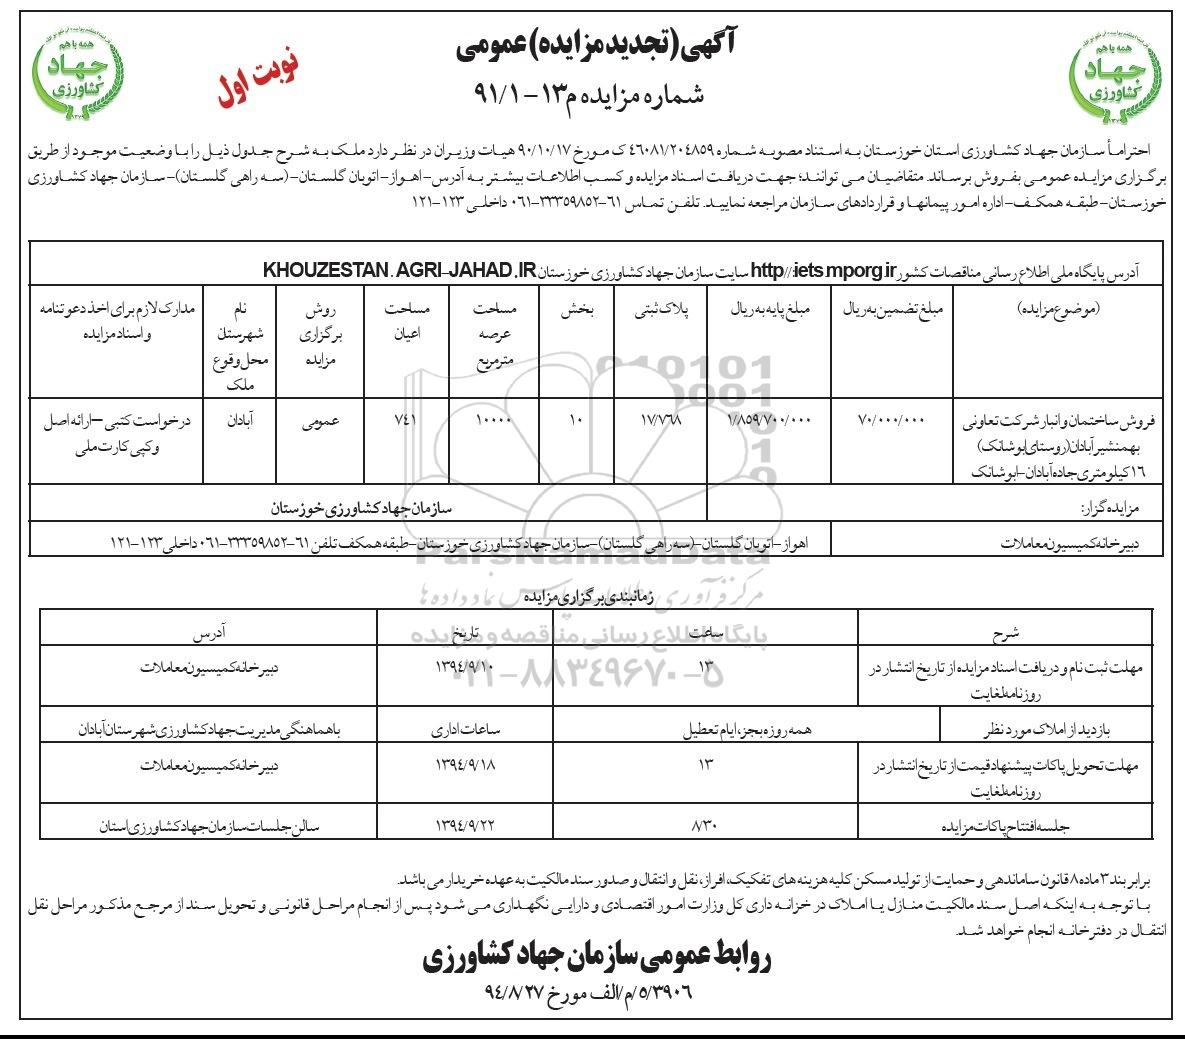 آگهی (تجدید مزایده) عمومی
شماره مزایده م۱۳-۹۱/۱
نوبت اول
همه با هم
جهاد
کشاورزی
همه با هم
جهاد
کشاورزی
احتراماً سازمان جهاد کشاورزی استان خوزستان به استناد مصوبه شماره ۴۶۰۸۱/۲۰۴۸۵۹ ک مورخ ۹۰/۱۰/۱۷ هیات وزیران در نظر دارد ملک به شرح جدول ذیل را با وضعیت موجود از طریق
برگزاری مزایده عمومی بفروش برساند. متقاضیان می توانند؛ جهت دریافت اسناد مزایده و کسب اطلاعات بیشتر به آدرس-اهواز-اتوبان گلستان-(سه راهی گلستان)-سازمان جهاد کشاورزی
خوزستان-طبقه همکف-اداره امور پیمانها و قراردادهای سازمان مراجعه نمایید. تلفن تماس ۶۱-۳۳۳۵۹۸۵۲-۰۶۱ داخلی ۱۲۳-۱۲۱
آدرس پایگاه ملی اطلاع رسانی مناقصات کشور http//:iets mporg.ir سایت سازمان جهاد کشاورزی خوزستان KHOUZESTAN . AGRI-JAHAD.IR
(موضوع مزایده) مبلغ تضمین به ریال مبلغ پایه به ریال پلاک ثبتی بخش مساحت عرصه مترمربع مساحت اعیان روش برگزاری مزایده نام شهرستان محل وقوع ملک مدارک لازم برای اخذ دعوتنامه و اسناد مزایده
فروش ساختمان و انبار شرکت تعاونی بهمنشیر آبادان (روستای ابوشانک) ۱۶ کیلومتری جاده آبادان-ابوشانک ۷۰/۰۰۰/۰۰۰ ۱/۸۵۹/۷۰۰/۰۰۰ ۱۷/۷۶۸ ۱۰ ۱۰۰۰۰ ۷۴۱ عمومی آبادان درخواست کتبی -ارائه اصل و کپی کارت ملی
مزایده گزار: سازمان جهاد کشاورزی خوزستان
دبیرخانه کمیسیون معاملات اهواز-اتوبان گلستان-(سه راهی گلستان)-سازمان جهاد کشاورزی خوزستان-طبقه همکف تلفن ۶۱-۳۳۳۵۹۸۵۲-۰۶۱ داخلی ۱۲۳-۱۲۱
ParsNamadData
زمانبندی برگزاری مزایده
پایگاه اطلاع رسانی مناقصه و مزایده
۰۲۱-۸۸۳۴۹۶۷۰-۵
شرح ساعت تاریخ آدرس
مهلت ثبت نام و دریافت اسناد مزایده از تاریخ انتشار در روزنامه لغایت ۱۳ ۱۳۹۴/۹/۱۰ دبیرخانه کمیسیون معاملات
بازدید از املاک مورد نظر همه روزه بجز، ایام تعطیل ساعات اداری با هماهنگی مدیریت جهاد کشاورزی شهرستان آبادان
مهلت تحویل پاکات پیشنهاد قیمت از تاریخ انتشار در روزنامه لغایت ۱۳ ۱۳۹۴/۹/۱۸ دبیرخانه کمیسیون معاملات
جلسه افتتاح پاکات مزایده ۸/۳۰ ۱۳۹۴/۹/۲۲ سالن جلسات سازمان جهاد کشاورزی استان
برابر بند ۳ ماده ۸ قانون ساماندهی و حمایت از تولید مسکن کلیه هزینه های تفکیک، افراز، نقل و انتقال و صدور سند مالکیت به عهده خریدار می باشد.
با توجه به اینکه اصل سند مالکیت منازل یا املاک در خزانه داری کل وزارت امور اقتصادی و دارایی نگهداری می شود پس از انجام مراحل قانونی و تحویل سند از مرجع مذکور مراحل نقل
انتقال در دفترخانه انجام خواهد شد.
روابط عمومی سازمان جهاد کشاورزی
۵/۳۹۰۶/م/الف مورخ ۹۴/۸/۲۷